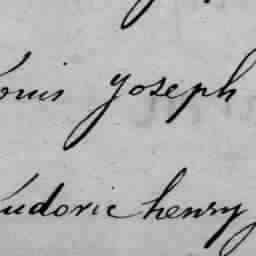 Louis Joseph
Ludovic henry